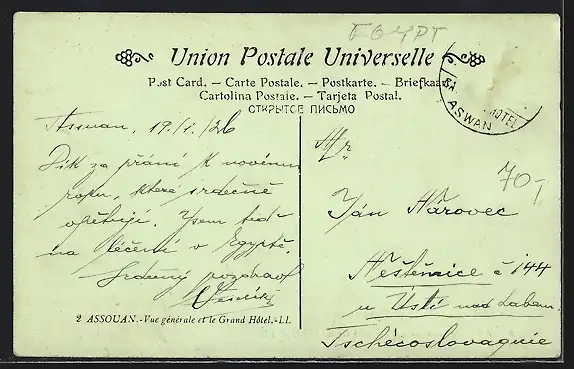 EGYPT
Union Postale Universelle
Post Card. — Carte Postale. — Postkarte. — Briefkaart
Cartolina Postale. — Tarjeta Postal.
ОТКРЫТСЕ ПИСЬМО
HOTEL
ASWAN
Assuan, 19/1./26
Dík za přání k novému
roku, které srdečně
opětuji. Jsem teď
na léčení v Egyptě.
Srdečný pozdrav
2 ASSOUAN.-Vue générale et le Grand Hôtel.-LL.
Mr
70,-
Ján Nářovec
Neštěmice č 144
u Ústí nad Labem
Tschécoslovaquie